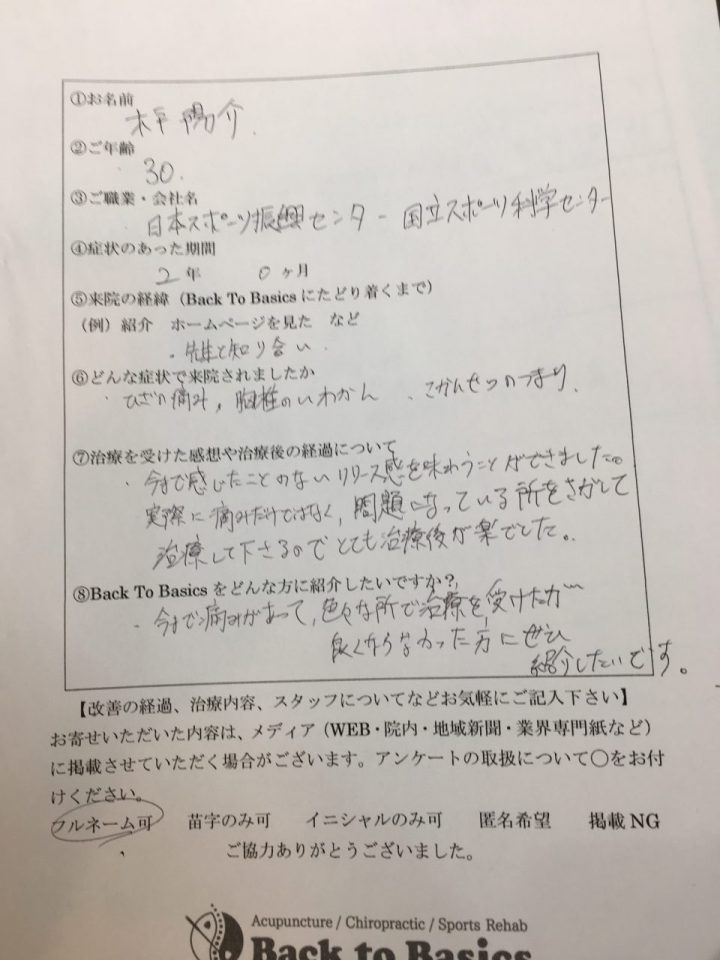 ①お名前
陽介
②ご年齢
30.
③ご職業・会社名
日本スポーツ振興センター 国立スポーツ科学センター
④症状のあった期間
2年 0ヶ月
⑤来院の経緯（Back To Basicsにたどり着くまで）
（例）紹介 ホームページを見た など
・先生と知り合い.
⑥どんな症状で来院されましたか
・ひざの痛み, 胸椎のいわかん 、こかんせつのつまり.
⑦治療を受けた感想や治療後の経過について
・今まで感じたことのないリリース感を味わうことができました。
実際に痛みだけではなく, 問題になっている所をさがして
治療して下さるのでとても治療後が楽でした。
⑧Back To Basicsをどんな方に紹介したいですか?
・今まで痛みがあって, 色々な所で治療を受けたが
良くならなかった方にぜひ
紹介したいです。
【改善の経過、治療内容、スタッフについてなどお気軽にご記入下さい】
お寄せいただいた内容は、メディア（WEB・院内・地域新聞・業界専門紙など）
に掲載させていただく場合がございます。アンケートの取扱について〇をお付
けください。
フルネーム可 苗字のみ可 イニシャルのみ可 匿名希望 掲載NG
ご協力ありがとうございました。
Acupuncture / Chiropractic / Sports Rehab
Back to Basics